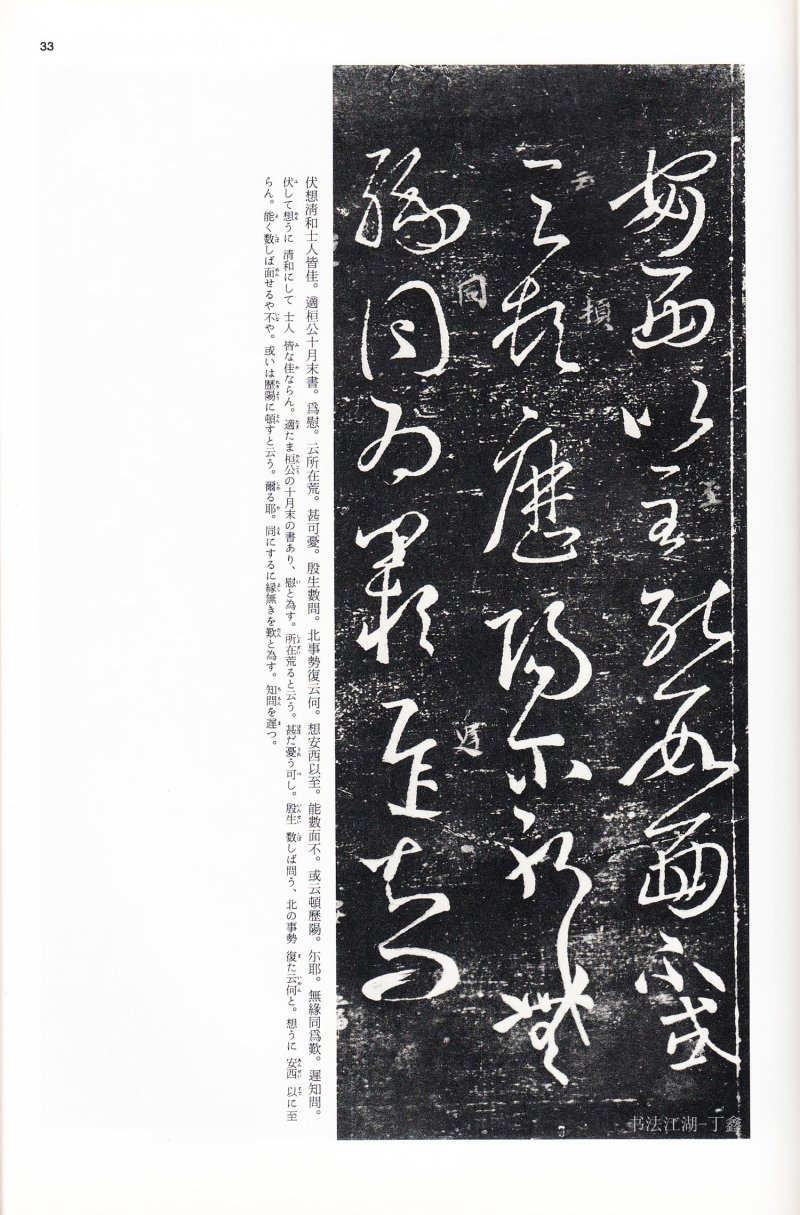 33
安西以至能數面不或
至
云頓歷陽尓耶無
云
頓
緣同為歎遲知問
同
遲
伏想清和士人皆佳。適桓公十月末書。爲慰。云所在荒。甚可憂。殷生數問。北事勢復云何。想安西以至。能數面不。或云頓歷陽。尓耶。無緣同爲歎。遲知問。
伏して想うに 清和にして 士人 皆な佳ならん。適たま桓公の十月末の書あり、慰と為す。所在荒ると云う。甚だ憂う可し。殷生 数しば問う、北の事勢 復た云何と。想うに 安西 以に至
らん。能く数しば面せるや不や。或いは歷陽に頓すと云う。爾る耶。同にするに縁無きを歎と為す。知問を遲つ。
书法江湖-丁鑫